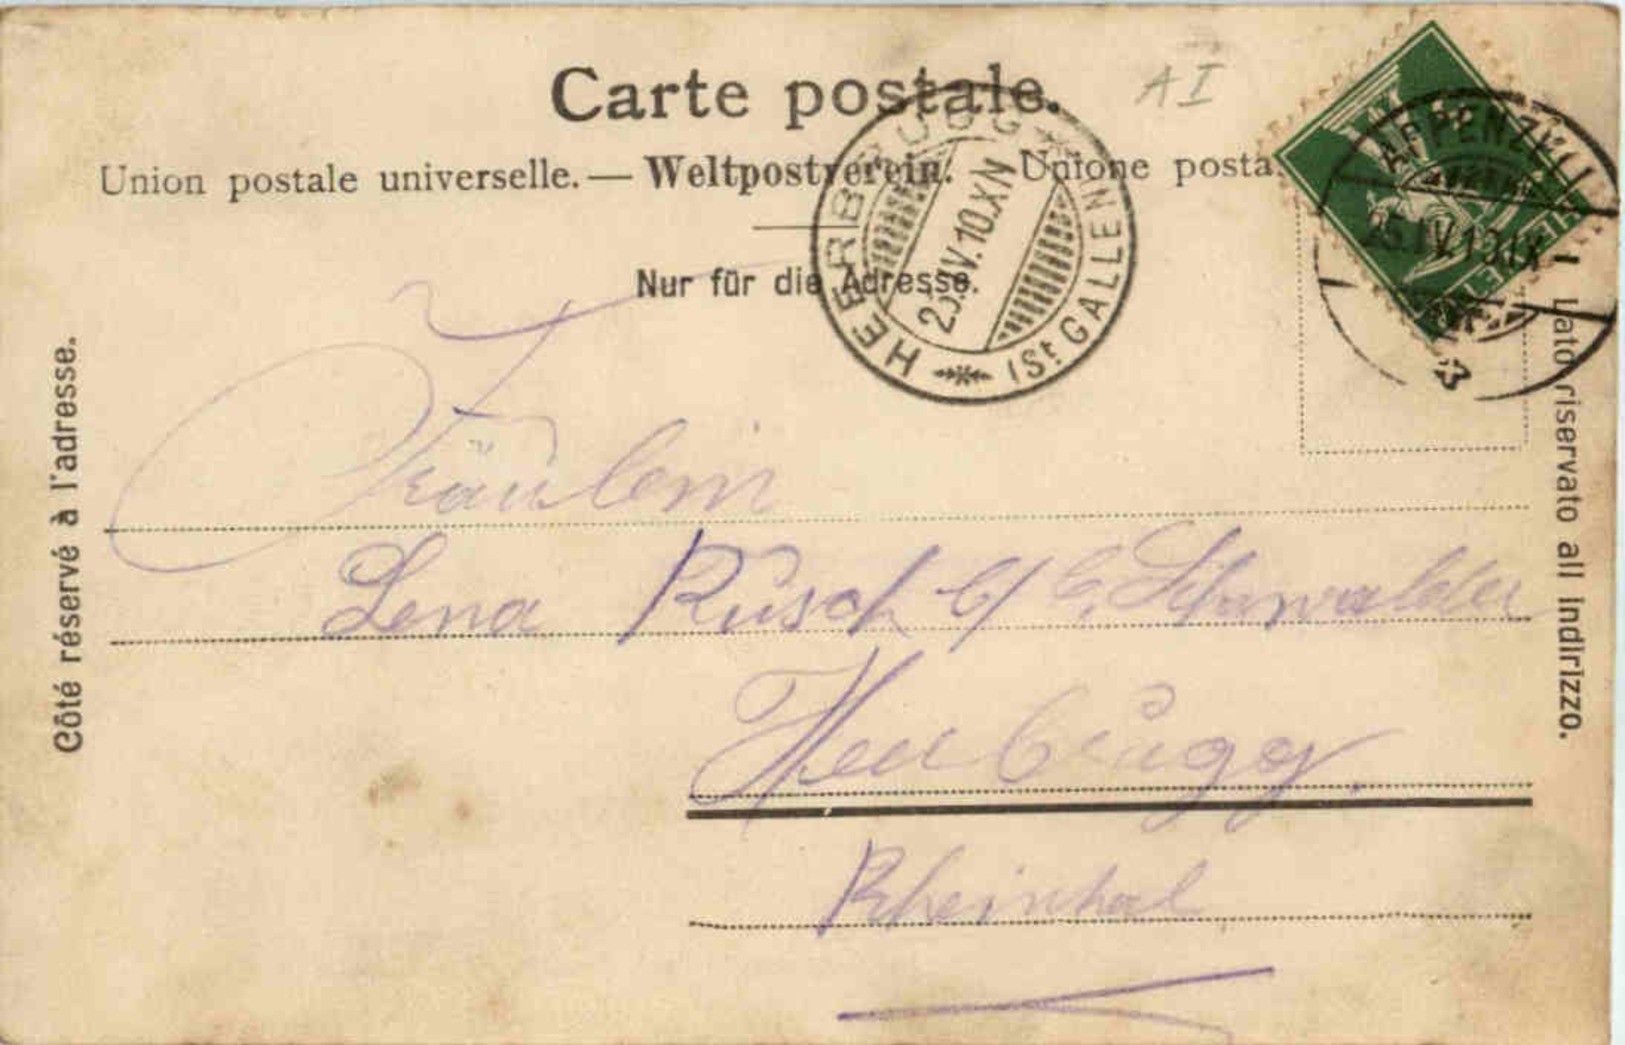 Carte postale.
A I
Union postale universelle. — Weltpostverein. Unione posta
Nur für die Adresse.
HEERBRUGG
(St GALLEN)
25.IV.10.XN
APPENZELL
25.IV.10.IX
Côté réservé à l'adresse.
Lato riservato all indirizzo.
Fräulein
Lena Rüsch b/
Heerbrugg.
Rheinthal